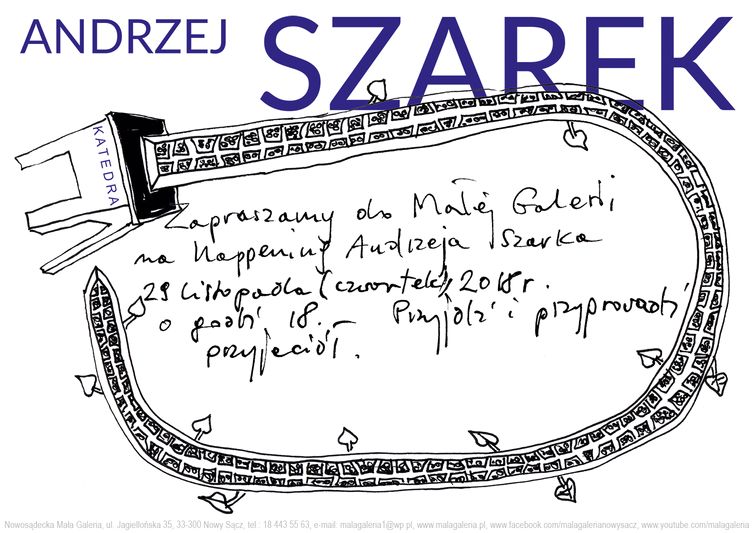 ANDRZEJ SZAREK
KATEDRA
Zapraszamy do Małej Galerii
na Happening Andrzeja Szarka
29 listopada (czwartek) 2018 r.
o godź 18.- Przyjdź i przyprowadź
przyjeciół.
Nowosądecka Mała Galeria, ul. Jagiellońska 35, 33-300 Nowy Sącz, tel : 18 443 55 63, e-mail: malagaleria1@wp.pl, www.malagaleria.pl, www.facebook.com/malagalerianowysacz, www.youtube.com/malagaleria